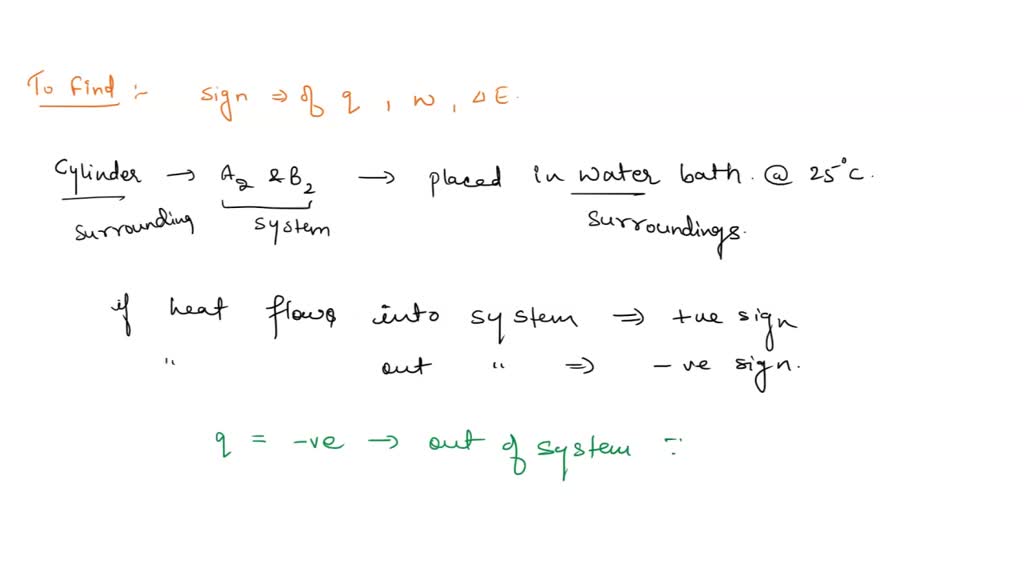 To find :- sign ⇒ of q, w, ΔE.
Cylinder → A2 & B2 → placed in water bath. @ 25°C.
surrounding system surroundings.
if heat flows into system ⇒ +ve sign
" out " ⇒ -ve sign.
q = -ve → out of system ∵